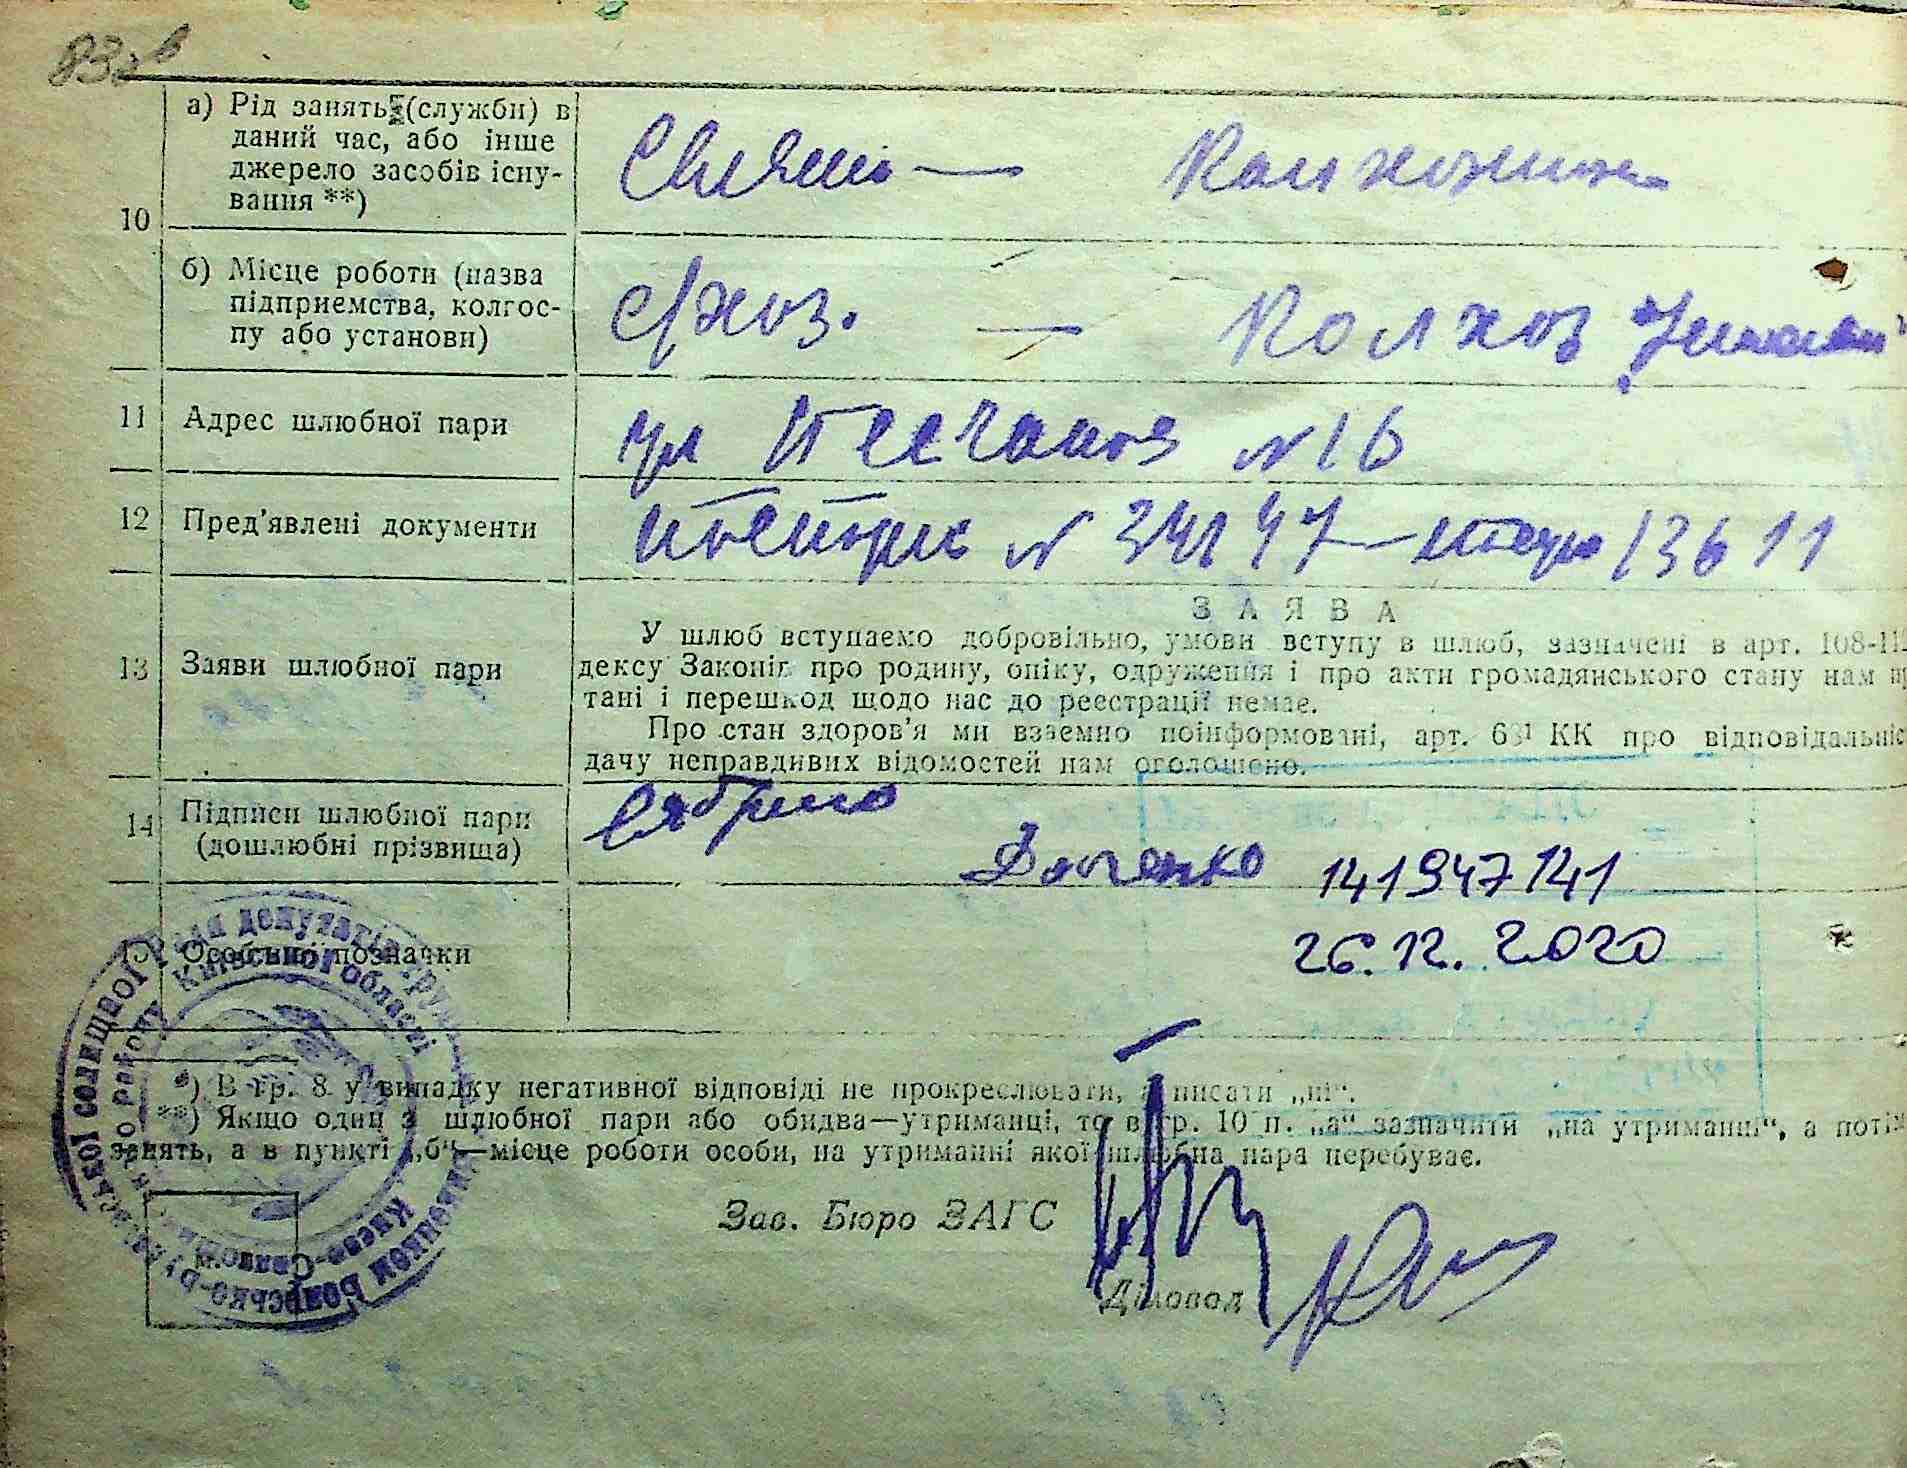 10
а) Рід занять (служби) в
даний час, або інше
джерело засобів існу-
вання **)
Колхозница
б) Місце роботи (назва
підприємства, колгос-
пу або установи)
с/хоз. — Колхоз
11 Адрес шлюбної пари
ул Песчаная № 16
12 Пред'явлені документи
паспорт N
13 Заяви шлюбної пари
ЗАЯВА
У шлюб вступаємо добровільно, умови вступу в шлюб, зазначені в арт. 108-11
дексу Законів про родину, опіку, одруження і про акти громадянського стану нам
тані і перешкод щодо нас до реєстрації немає.
Про стан здоров'я ми взаємно поінформовані, арт. 63¹ КК про відповідальніс
дачу неправдивих відомостей нам оголошено.
14 Підписи шлюбної пари
(дошлюбні прізвища)
141947141
Особливі позначки
26.12.2020
*) В гр. 8 у випадку негативної відповіді не прокреслювати, а писати „ні".
**) Якщо один з шлюбної пари або обидва—утриманці, то в гр. 10 п. „а" зазначити „на утриманні", а поті
занять, а в пункті „б"—місце роботи особи, на утриманні якої шлюбна пара перебуває.
Зав. Бюро ЗАГС
Діловод
Київської області